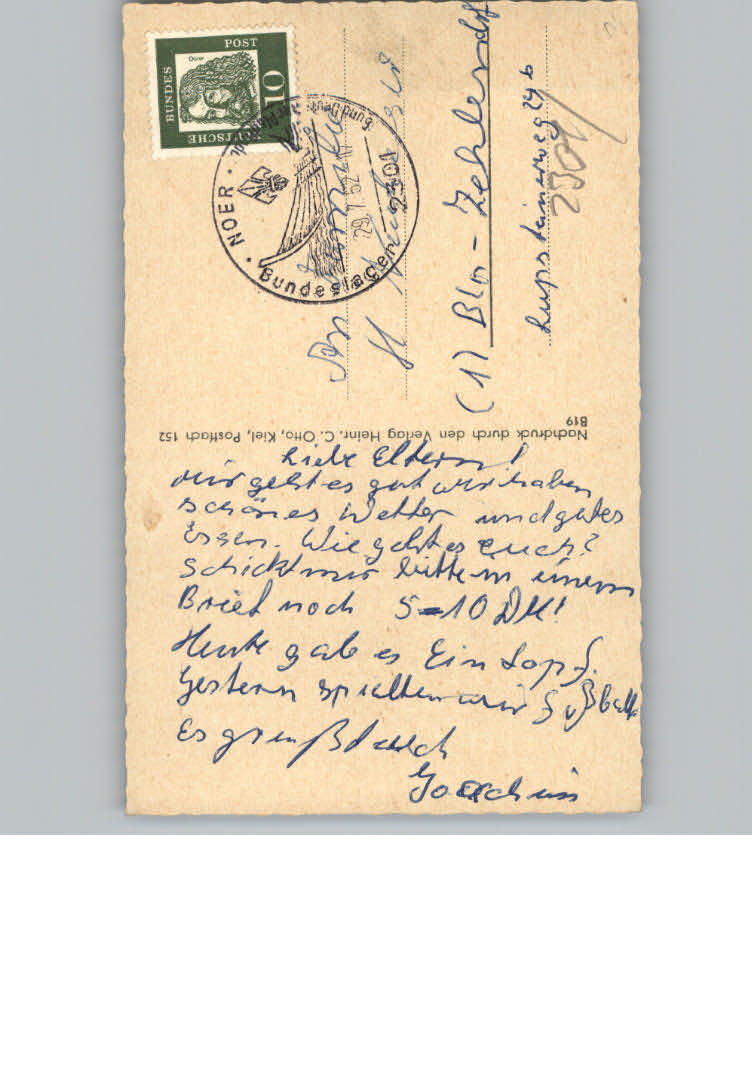 DEUTSCHE
BUNDES
POST
10
Dürer
NOER
Bundeslager
29.7.62
2301
An
(1) Bln-Zehlendorf
2301
Nachdruck durch den Verlag Heinr. C. Otto, Kiel, Postfach 152
B19
Liebe Eltern!
mir geht es gut wir haben
schönes Wetter und gutes
Essen. Wie geht es euch?
Schickt mir bitte in einem
Brief noch 5-10 DM!
Heute gab es Eintopf.
Gestern spielten wir Fußball
Es grüßt euch
Joachim